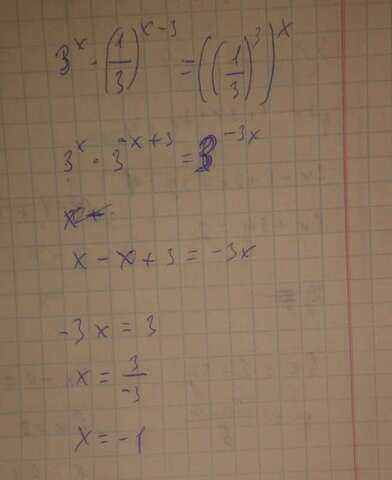 3^x · (1/3)^(x-3) = ((1/3)^3)^x
3^x · 3^(-x+3) = 3^(-3x)
x - x + 3 = -3x
-3x = 3
x = 3/-3
x = -1